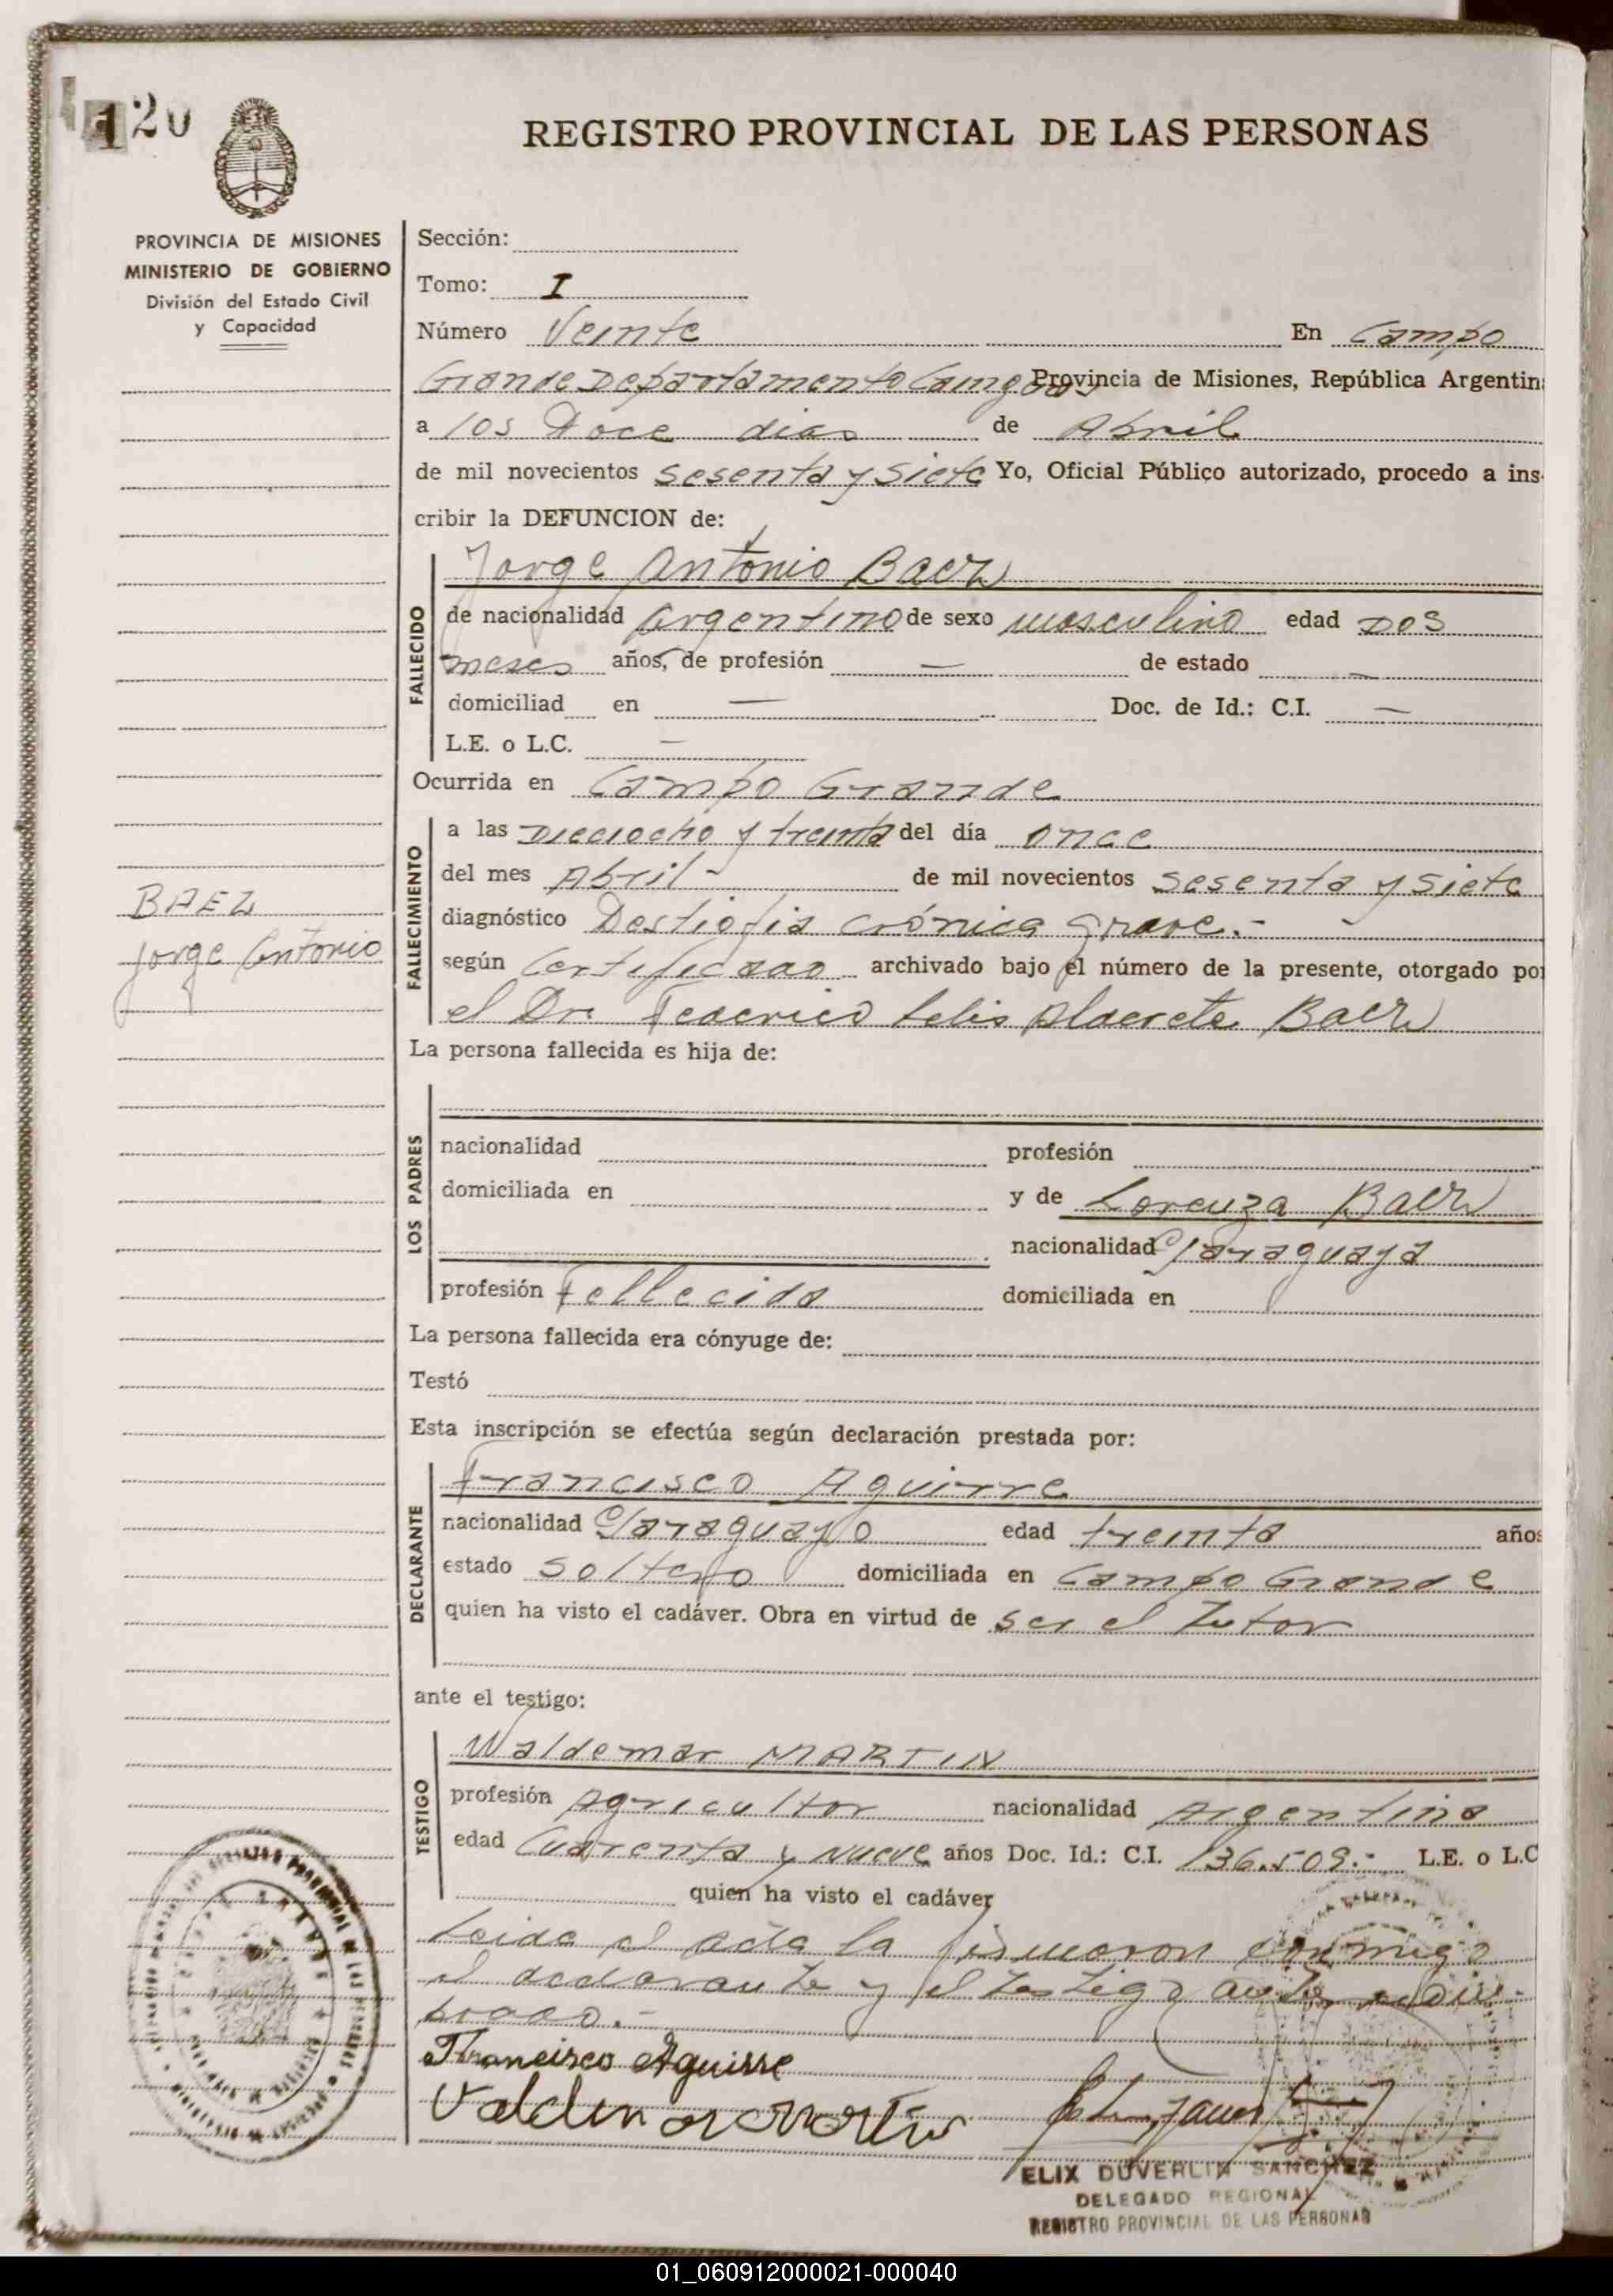 120
REGISTRO PROVINCIAL DE LAS PERSONAS
PROVINCIA DE MISIONES
MINISTERIO DE GOBIERNO
División del Estado Civil
y Capacidad
Sección:
Tomo: I
Número Veinte En Campo
Grande Departamento Cainguas Provincia de Misiones, República Argentin
a los Doce dias de Abril
de mil novecientos sesenta y siete Yo, Oficial Público autorizado, procedo a ins-
cribir la DEFUNCION de:
FALLECIDO
Jorge Antonio Baez
de nacionalidad argentino de sexo masculino edad Dos
meses años, de profesión — de estado —
domiciliad en — Doc. de Id.: C.I. —
L.E. o L.C. —
Ocurrida en Campo Grande
FALLECIMIENTO
a las Dieciocho y treinta del día once
del mes Abril - de mil novecientos sesenta y siete
diagnóstico crónica grave.-
según Certificado archivado bajo el número de la presente, otorgado por
el Dr. Federico Baez
BAEZ
Jorge Antonio
La persona fallecida es hija de:
LOS PADRES
nacionalidad profesión
domiciliada en y de Lorenza Baez
nacionalidad Paraguaya
profesión Fallecida domiciliada en
La persona fallecida era cónyuge de:
Testó
Esta inscripción se efectúa según declaración prestada por:
DECLARANTE
Francisco Aguirre
nacionalidad Paraguayo edad treinta años
estado soltero domiciliada en Campo Grande
quien ha visto el cadáver. Obra en virtud de ser el tutor
ante el testigo:
TESTIGO
Waldemar MARTIN
profesión Agricultor nacionalidad Argentina
edad Cuarenta y nueve años Doc. Id.: C.I. 136.509.- L.E. o L.C
quien ha visto el cadáver
Leida el acta la firmaron conmigo
el declarante y el testigo
Francisco Aguirre
Valdemar Martin
ELIX DUVERLIN SANCHEZ
DELEGADO REGIONAL
REGISTRO PROVINCIAL DE LAS PERSONAS
01_060912000021-000040